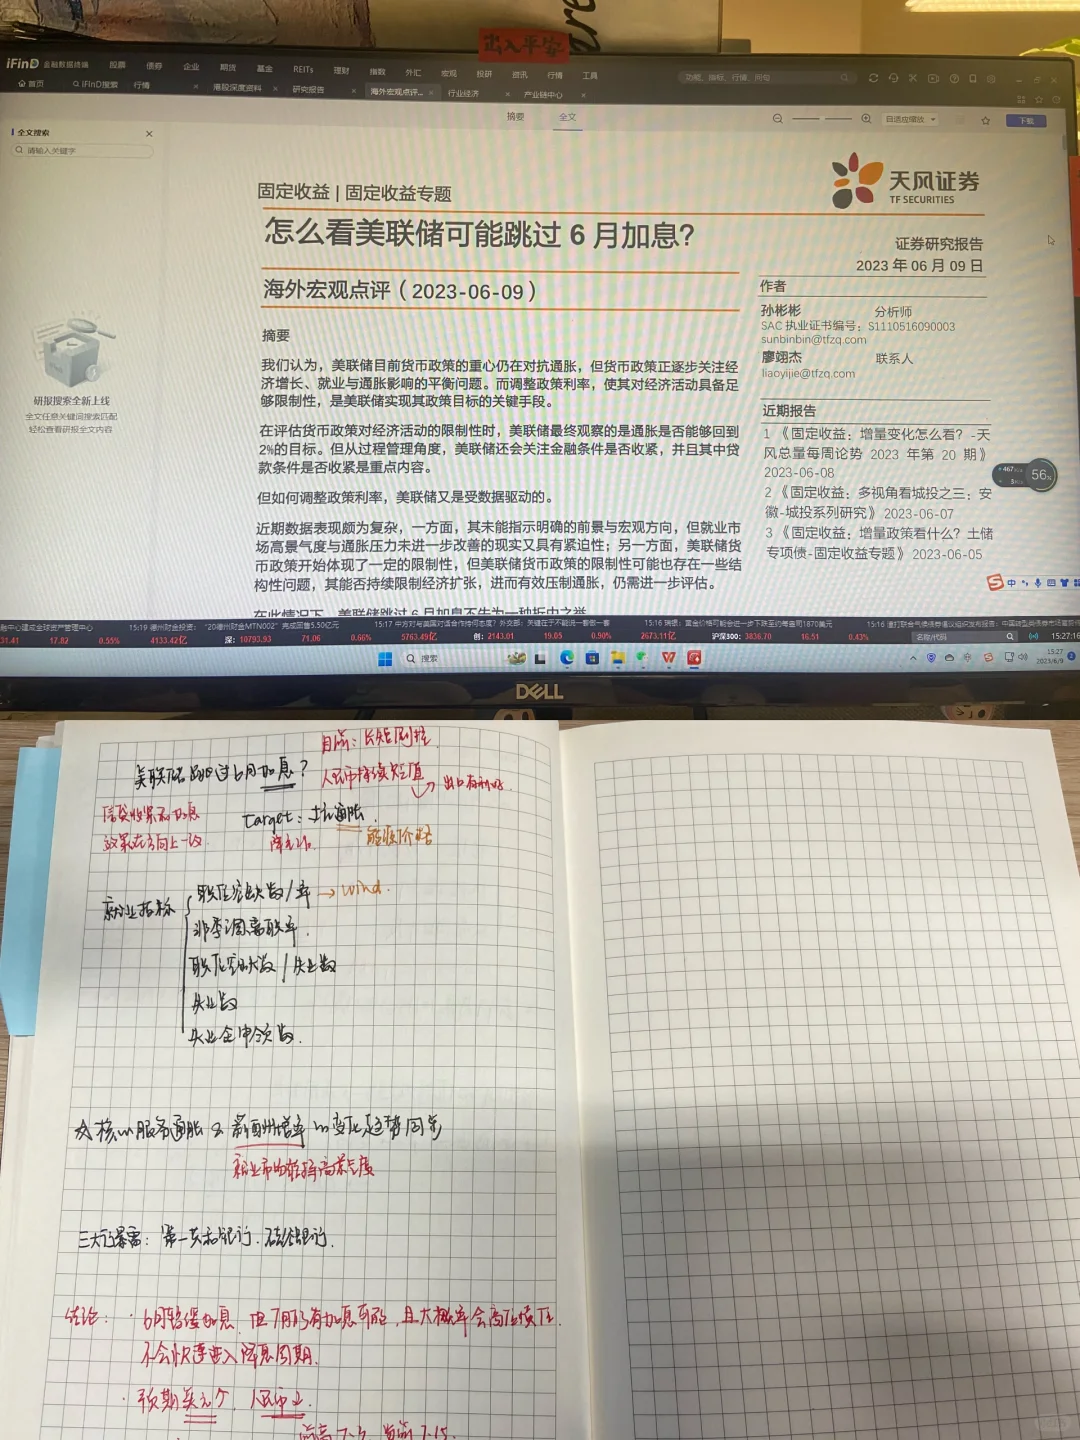 出入平安
iFinD 金融数据终端 股票 债券 企业 期货 基金 REITs 理财 指数 外汇 宏观 投研 资讯 行情 工具
功能、指标、行情、问句
首页 iFinD搜索 行情 港股深度资料 研究报告 海外宏观点评... 行业经济 产业链中心
摘要 全文
自适应缩放 下载
全文搜索
请输入关键字
研报搜索全新上线
全文任意关键词搜索匹配
轻松查看研报全文内容
固定收益 | 固定收益专题
天风证券
TF SECURITIES
怎么看美联储可能跳过 6 月加息?
证券研究报告
2023 年 06 月 09 日
海外宏观点评（2023-06-09）
作者
孙彬彬 分析师
SAC 执业证书编号：S1110516090003
sunbinbin@tfzq.com
廖翊杰 联系人
liaoyijie@tfzq.com
摘要
我们认为，美联储目前货币政策的重心仍在对抗通胀，但货币政策正逐步关注经
济增长、就业与通胀影响的平衡问题。而调整政策利率，使其对经济活动具备足
够限制性，是美联储实现其政策目标的关键手段。
在评估货币政策对经济活动的限制性时，美联储最终观察的是通胀是否能够回到
2%的目标。但从过程管理角度，美联储还会关注金融条件是否收紧，并且其中贷
款条件是否收紧是重点内容。
但如何调整政策利率，美联储又是受数据驱动的。
近期数据表现颇为复杂，一方面，其未能指示明确的前景与宏观方向，但就业市
场高景气度与通胀压力未进一步改善的现实又具有紧迫性；另一方面，美联储货
币政策开始体现了一定的限制性，但美联储货币政策的限制性可能也存在一些结
构性问题，其能否持续限制经济扩张，进而有效压制通胀，仍需进一步评估。
在此情况下，美联储跳过 6 月加息不失为一种折中之举
近期报告
1 《固定收益：增量变化怎么看？-天
风总量每周论势 2023 年第 20 期》
2023-06-08
2 《固定收益：多视角看城投之三：安
徽-城投系列研究》 2023-06-07
3 《固定收益：增量政策看什么？土储
专项债-固定收益专题》 2023-06-05
56%
中
15:19 德州财金投资："20德州财金MTN002"完成回售5.50亿元
31.41 17.82 0.55% 4133.42亿 深: 10793.93 71.06 0.66% 5763.49亿 创: 2143.01 19.05 0.90% 2673.11亿 沪深300: 3836.70 16.51 0.43% 名称/代码 15:27:16
搜索
15:27
2023/6/9
DELL
美联储跳过6月加息？
人民币持续贬值
出口有利好
信贷收紧和加息
效果在方向上一致
target：抗通胀
就业指标
职位空缺数/率 → wind.
非季调离职率.
职位空缺数/失业数
失业数
失业金申领数.
核心服务通胀&薪酬增率的变化趋势同步
就业市场维持高景气度
三大行暴雷：第一共和银行.硅谷银行.
结论：·6月暂缓加息，但7月仍有加息可能，且大概率会高位续压.
不会快速进入降息周期.
·预期美元个，人民币